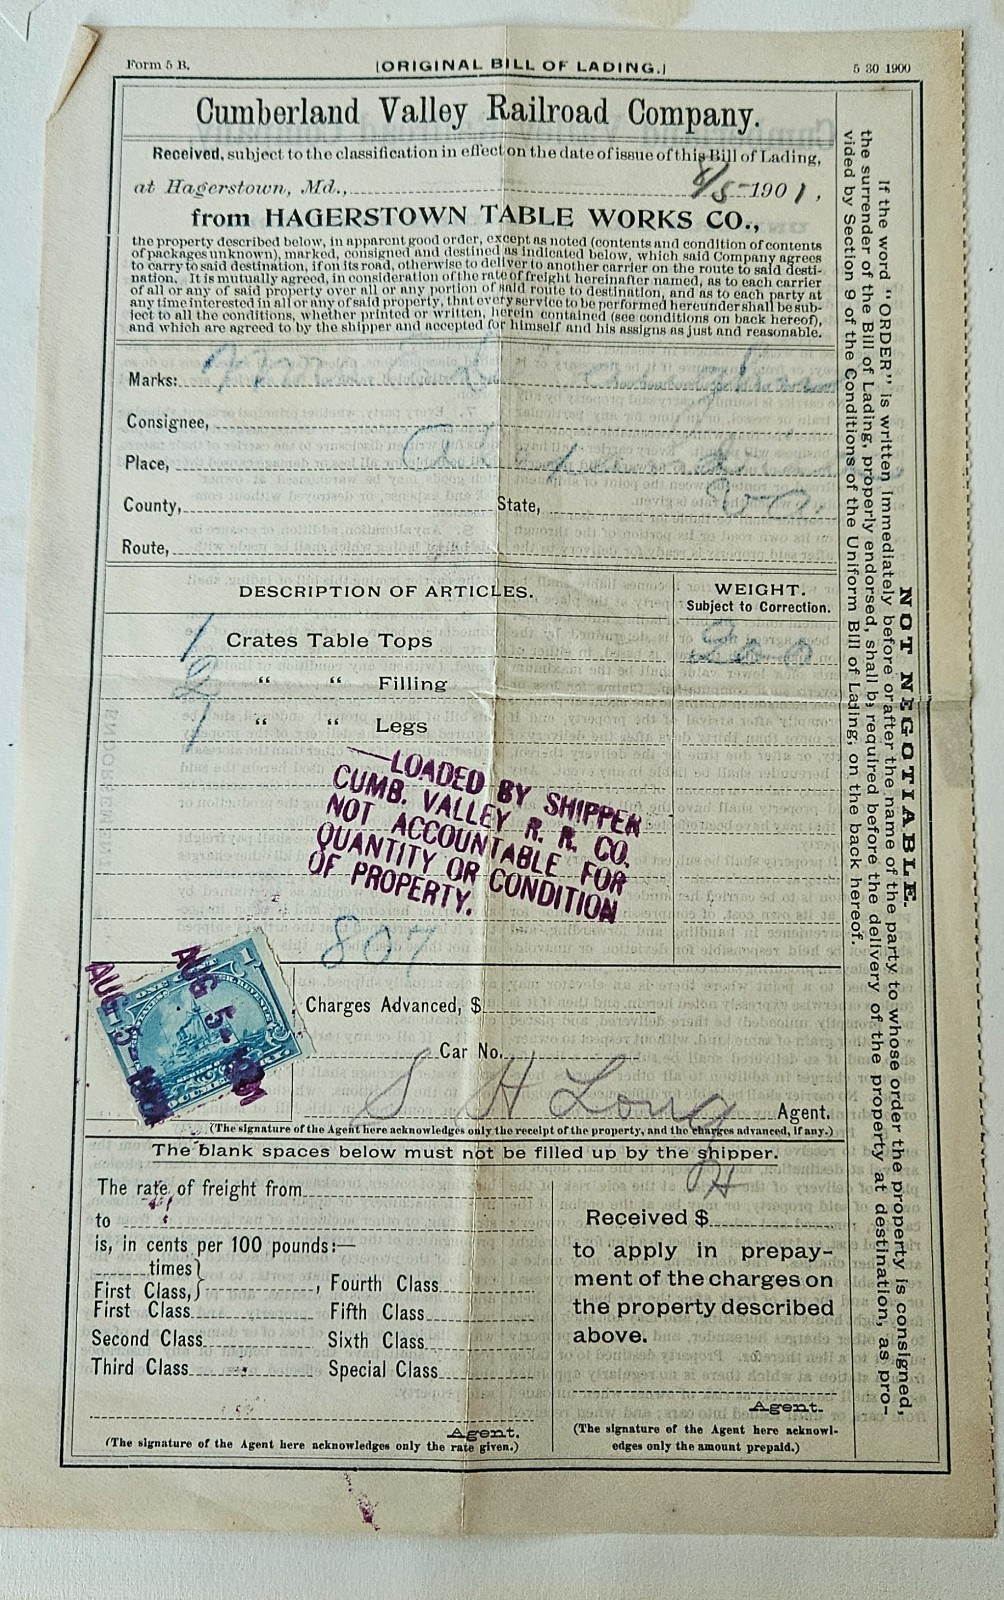 Form 5 B.
[ORIGINAL BILL OF LADING.]
5 30 1900
Cumberland Valley Railroad Company.
Received, subject to the classification in effect on the date of issue of this Bill of Lading,
at Hagerstown, Md., 8/5 1901,
from HAGERSTOWN TABLE WORKS CO.,
the property described below, in apparent good order, except as noted (contents and condition of contents
of packages unknown), marked, consigned and destined as indicated below, which said Company agrees
to carry to said destination, if on its road, otherwise to deliver to another carrier on the route to said desti-
nation. It is mutually agreed, in consideration of the rate of freight hereinafter named, as to each carrier
of all or any of said property over all or any portion of said route to destination, and as to each party at
any time interested in all or any of said property, that every service to be performed hereunder shall be sub-
ject to all the conditions, whether printed or written, herein contained (see conditions on back hereof),
and which are agreed to by the shipper and accepted for himself and his assigns as just and reasonable.
Marks:
Consignee,
Place,
County, State, Va.
Route,
DESCRIPTION OF ARTICLES.
WEIGHT.
Subject to Correction.
1 Crates Table Tops 200
" " Filling
1 " " Legs
LOADED BY SHIPPER
CUMB. VALLEY R. R. CO.
NOT ACCOUNTABLE FOR
QUANTITY OR CONDITION
OF PROPERTY.
807
AUG 5- 1901
AUG 5-
ONE CENT
1
SERIES OF 1898
DOCUMENTARY
Charges Advanced, $
Car No.
S H Long Agent.
(The signature of the Agent here acknowledges only the receipt of the property, and the charges advanced, if any.)
The blank spaces below must not be filled up by the shipper.
The rate of freight from
to
is, in cents per 100 pounds:—
times
First Class,
First Class
Second Class
Third Class
Fourth Class
Fifth Class
Sixth Class
Special Class
Agent.
(The signature of the Agent here acknowledges only the rate given.)
Received $
to apply in prepay-
ment of the charges on
the property described
above.
Agent.
(The signature of the Agent here acknowl-
edges only the amount prepaid.)
NOT NEGOTIABLE.
If the word "ORDER" is written immediately before or after the name of the party to whose order the property is consigned,
the surrender of the Bill of Lading, properly endorsed, shall be required before the delivery of the property at destination, as pro-
vided by Section 9 of the Conditions of the Uniform Bill of Lading, on the back hereof.